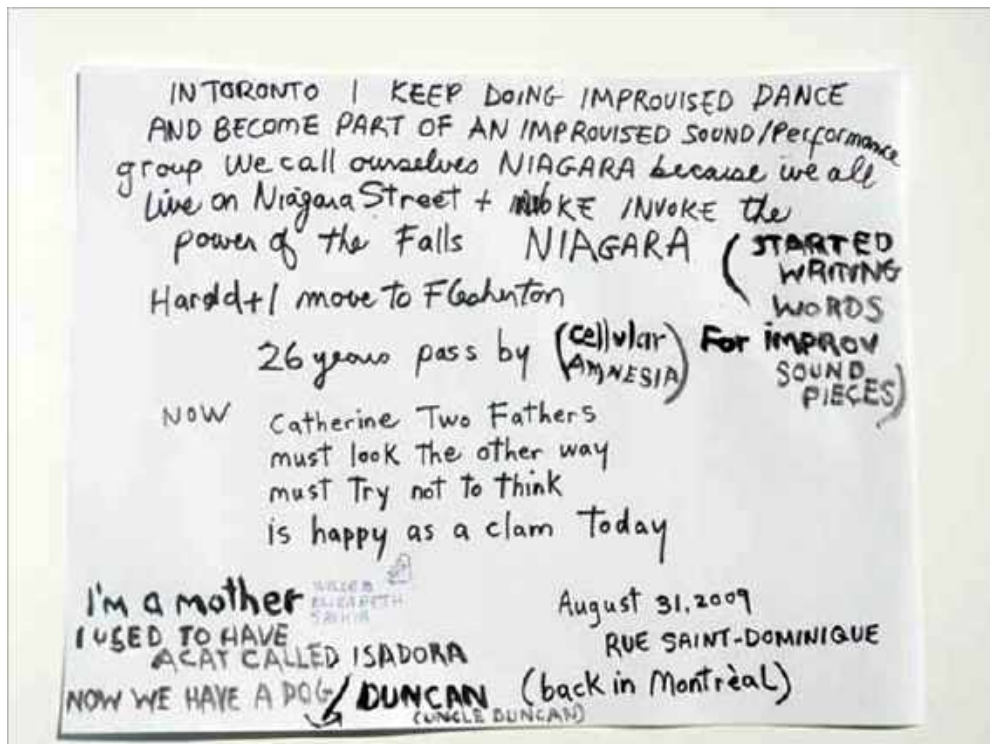 IN TORONTO I KEEP DOING IMPROVISED DANCE
AND BECOME PART OF AN IMPROVISED SOUND/Performance
group We call ourselves NIAGARA because we all
Live on Niagara Street + INVOKE the
power of the Falls NIAGARA
(STARTED
WRITING
WORDS
For IMPROV
SOUND
PIECES)
+ I move to Flesherton
26 years pass by (cellular
AMNESIA)
NOW Catherine Two Fathers
must look The other way
must Try not to think
is happy as a clam Today
I'm a mother
ELIZABETH
I USED TO HAVE
A CAT CALLED ISADORA
NOW WE HAVE A DOG / DUNCAN
(UNCLE DUNCAN)
August 31, 2009
RUE SAINT-DOMINIQUE
(back in Montrèal)